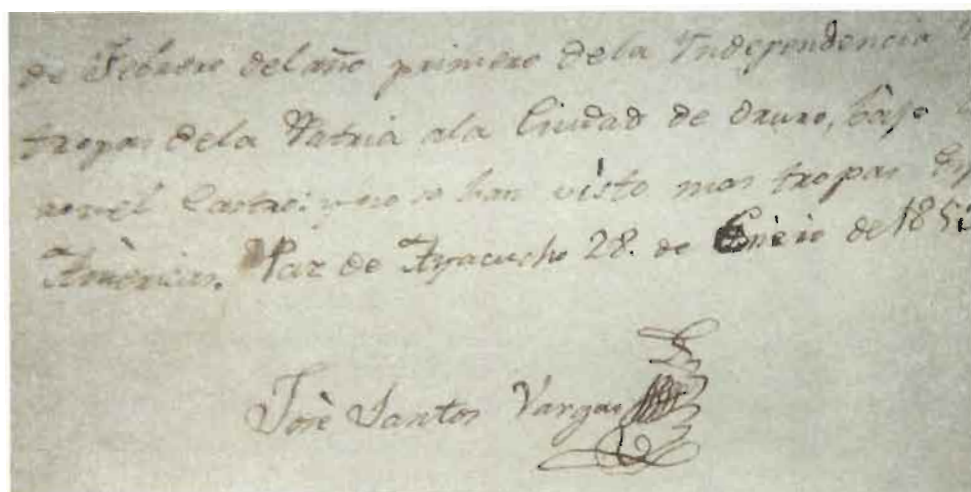 de Febrero del año primero dela Independencia
tropas dela Patria ala Ciudad de Oruro, bajo
ronel Castro: y no se han visto mas tropas Esp
Américas. Paz de Ayacucho 28. de Enèro de 185
Josè Santos Vargas